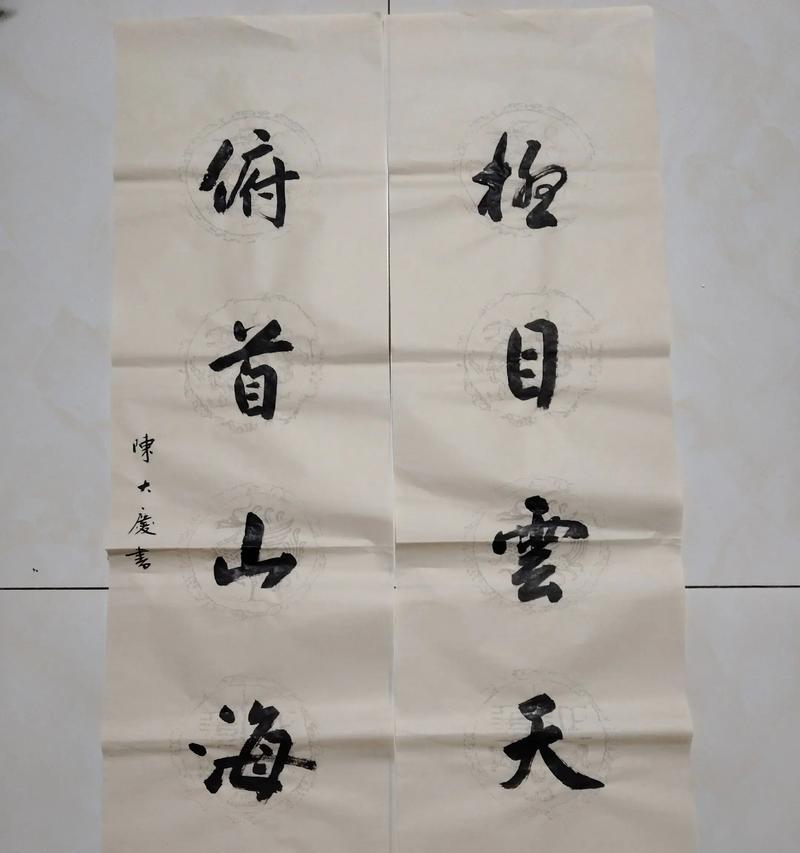 極目雲天
俯首山海
陳大慶書